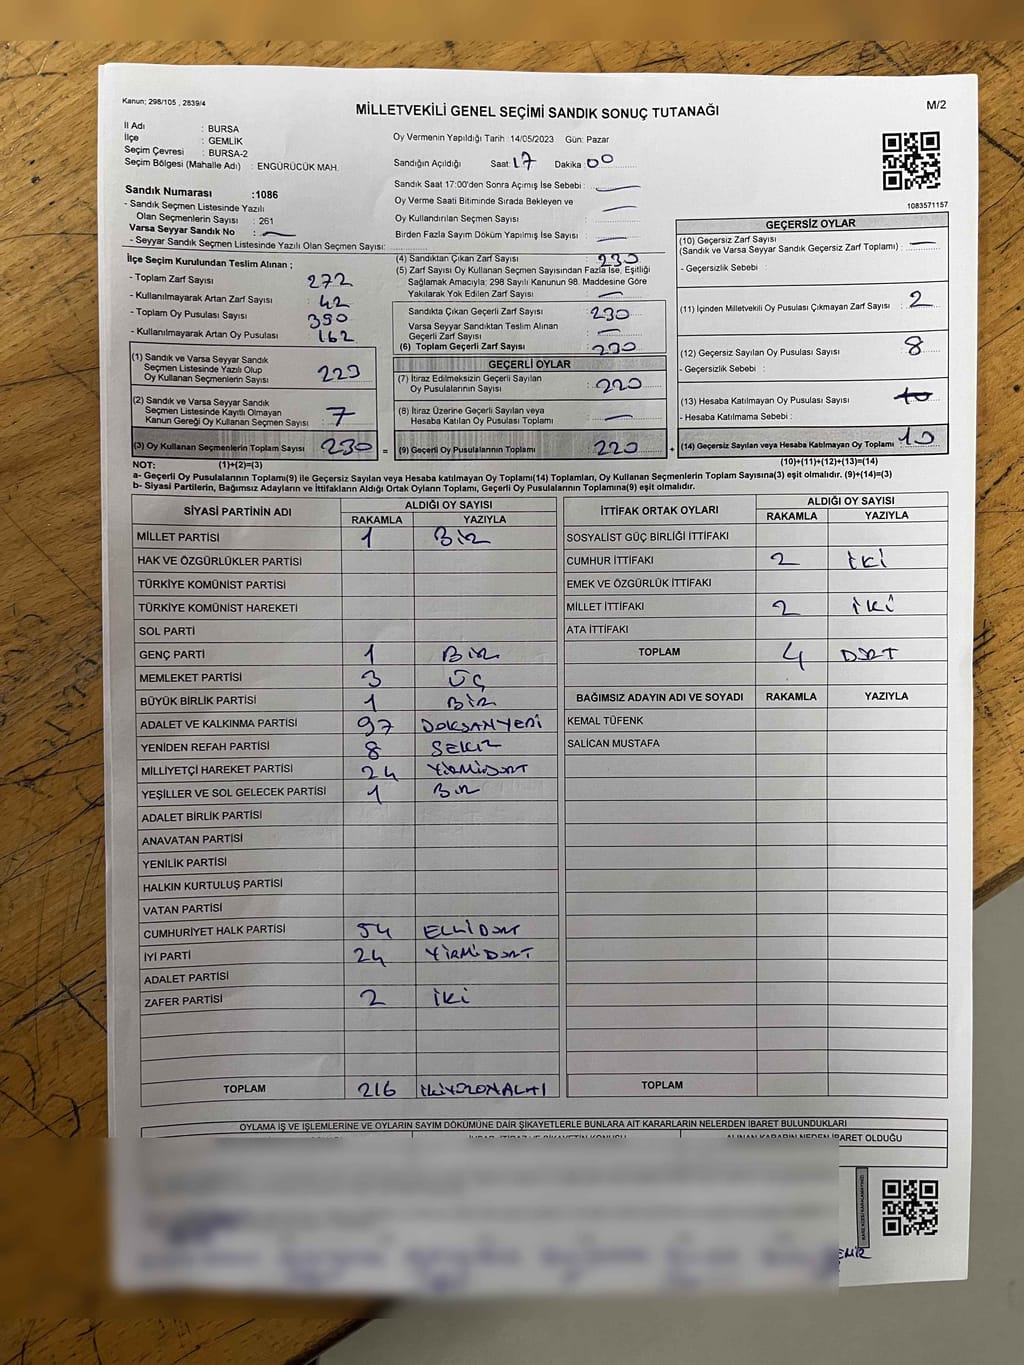 Kanun; 298/105 , 2839/4
MİLLETVEKİLİ GENEL SEÇİMİ SANDIK SONUÇ TUTANAĞI
M/2
İl Adı : BURSA
İlçe : GEMLİK
Seçim Çevresi : BURSA-2
Seçim Bölgesi (Mahalle Adı) : ENGÜRÜCÜK MAH.
Oy Vermenin Yapıldığı Tarih :14/05/2023 Gün: Pazar
Sandığın Açıldığı Saat: 17 Dakika: 00
Sandık Saat 17:00'den Sonra Açımış İse Sebebi : —
Oy Verme Saati Bitiminde Sırada Bekleyen ve
Oy Kullandırılan Seçmen Sayısı : —
Birden Fazla Sayım Döküm Yapılmış İse Sayısı : —
1083571157
Sandık Numarası :1086
- Sandık Seçmen Listesinde Yazılı
Olan Seçmenlerin Sayısı : 261
Varsa Seyyar Sandık No : —
- Seyyar Sandık Seçmen Listesinde Yazılı Olan Seçmen Sayısı:
İlçe Seçim Kurulundan Teslim Alınan ;
- Toplam Zarf Sayısı : 272
- Kullanılmayarak Artan Zarf Sayısı : 42
- Toplam Oy Pusulası Sayısı : 390
- Kullanılmayarak Artan Oy Pusulası : 162
(1) Sandık ve Varsa Seyyar Sandık
Seçmen Listesinde Yazılı Olup
Oy Kullanan Seçmenlerin Sayısı : 223
(2) Sandık ve Varsa Seyyar Sandık
Seçmen Listesinde Kayıtlı Olmayan
Kanun Gereği Oy Kullanan Seçmen Sayısı : 7
(3) Oy Kullanan Seçmenlerin Toplam Sayısı : 230 =
(4) Sandıktan Çıkan Zarf Sayısı : 230
(5) Zarf Sayısı Oy Kullanan Seçmen Sayısından Fazla İse, Eşitliği
Sağlamak Amacıyla; 298 Sayılı Kanunun 98. Maddesine Göre
Yakılarak Yok Edilen Zarf Sayısı : —
Sandıkta Çıkan Geçerli Zarf Sayısı : 230
Varsa Seyyar Sandıktan Teslim Alınan
Geçerli Zarf Sayısı : —
(6) Toplam Geçerli Zarf Sayısı : 230
GEÇERLİ OYLAR
(7) İtiraz Edilmeksizin Geçerli Sayılan
Oy Pusulalarının Sayısı : 220
(8) İtiraz Üzerine Geçerli Sayılan veya
Hesaba Katılan Oy Pusulası Toplamı : —
(9) Geçerli Oy Pusulalarının Toplamı : 220 +
GEÇERSİZ OYLAR
(10) Geçersiz Zarf Sayısı
(Sandık ve Varsa Seyyar Sandık Geçersiz Zarf Toplamı) : —
- Geçersizlik Sebebi :
(11) İçinden Milletvekili Oy Pusulası Çıkmayan Zarf Sayısı : 2
(12) Geçersiz Sayılan Oy Pusulası Sayısı : 8
- Geçersizlik Sebebi :
(13) Hesaba Katılmayan Oy Pusulası Sayısı : 10
- Hesaba Katılmama Sebebi :
(14) Geçersiz Sayılan veya Hesaba Katılmayan Oy Toplamı : 10
NOT: (1)+(2)=(3)
(10)+(11)+(12)+(13)=(14)
a- Geçerli Oy Pusulalarının Toplamı(9) ile Geçersiz Sayılan veya Hesaba katılmayan Oy Toplamı(14) Toplamları, Oy Kullanan Seçmenlerin Toplam Sayısına(3) eşit olmalıdır. (9)+(14)=(3)
b- Siyasi Partilerin, Bağımsız Adayların ve İttifakların Aldığı Ortak Oyların Toplamı, Geçerli Oy Pusulalarının Toplamına(9) eşit olmalıdır.
SİYASİ PARTİNİN ADI ALDIĞI OY SAYISI
RAKAMLA YAZIYLA
MİLLET PARTİSİ 1 BİR
HAK VE ÖZGÜRLÜKLER PARTİSİ
TÜRKİYE KOMÜNİST PARTİSİ
TÜRKİYE KOMÜNİST HAREKETİ
SOL PARTİ
GENÇ PARTİ 1 BİR
MEMLEKET PARTİSİ 3 ÜÇ
BÜYÜK BİRLİK PARTİSİ 1 BİR
ADALET VE KALKINMA PARTİSİ 97 DOKSANYEDİ
YENİDEN REFAH PARTİSİ 8 SEKİZ
MİLLİYETÇİ HAREKET PARTİSİ 24 YİRMİDÖRT
YEŞİLLER VE SOL GELECEK PARTİSİ 1 BİR
ADALET BİRLİK PARTİSİ
ANAVATAN PARTİSİ
YENİLİK PARTİSİ
HALKIN KURTULUŞ PARTİSİ
VATAN PARTİSİ
CUMHURİYET HALK PARTİSİ 54 ELLİDÖRT
İYİ PARTİ 24 YİRMİDÖRT
ADALET PARTİSİ
ZAFER PARTİSİ 2 İKİ
TOPLAM 216 İKİYÜZONALTI
İTTİFAK ORTAK OYLARI ALDIĞI OY SAYISI
RAKAMLA YAZIYLA
SOSYALİST GÜÇ BİRLİĞİ İTTİFAKI
CUMHUR İTTİFAKI 2 İKİ
EMEK VE ÖZGÜRLÜK İTTİFAKI
MİLLET İTTİFAKI 2 İKİ
ATA İTTİFAKI
TOPLAM 4 DÖRT
BAĞIMSIZ ADAYIN ADI VE SOYADI RAKAMLA YAZIYLA
KEMAL TÜFENK
SALİCAN MUSTAFA
TOPLAM
OYLAMA İŞ VE İŞLEMLERİNE VE OYLARIN SAYIM DÖKÜMÜNE DAİR ŞİKAYETLERLE BUNLARA AİT KARARLARIN NELERDEN İBARET BULUNDUKLARI
ALINAN KARARIN NEDEN İBARET OLDUĞU